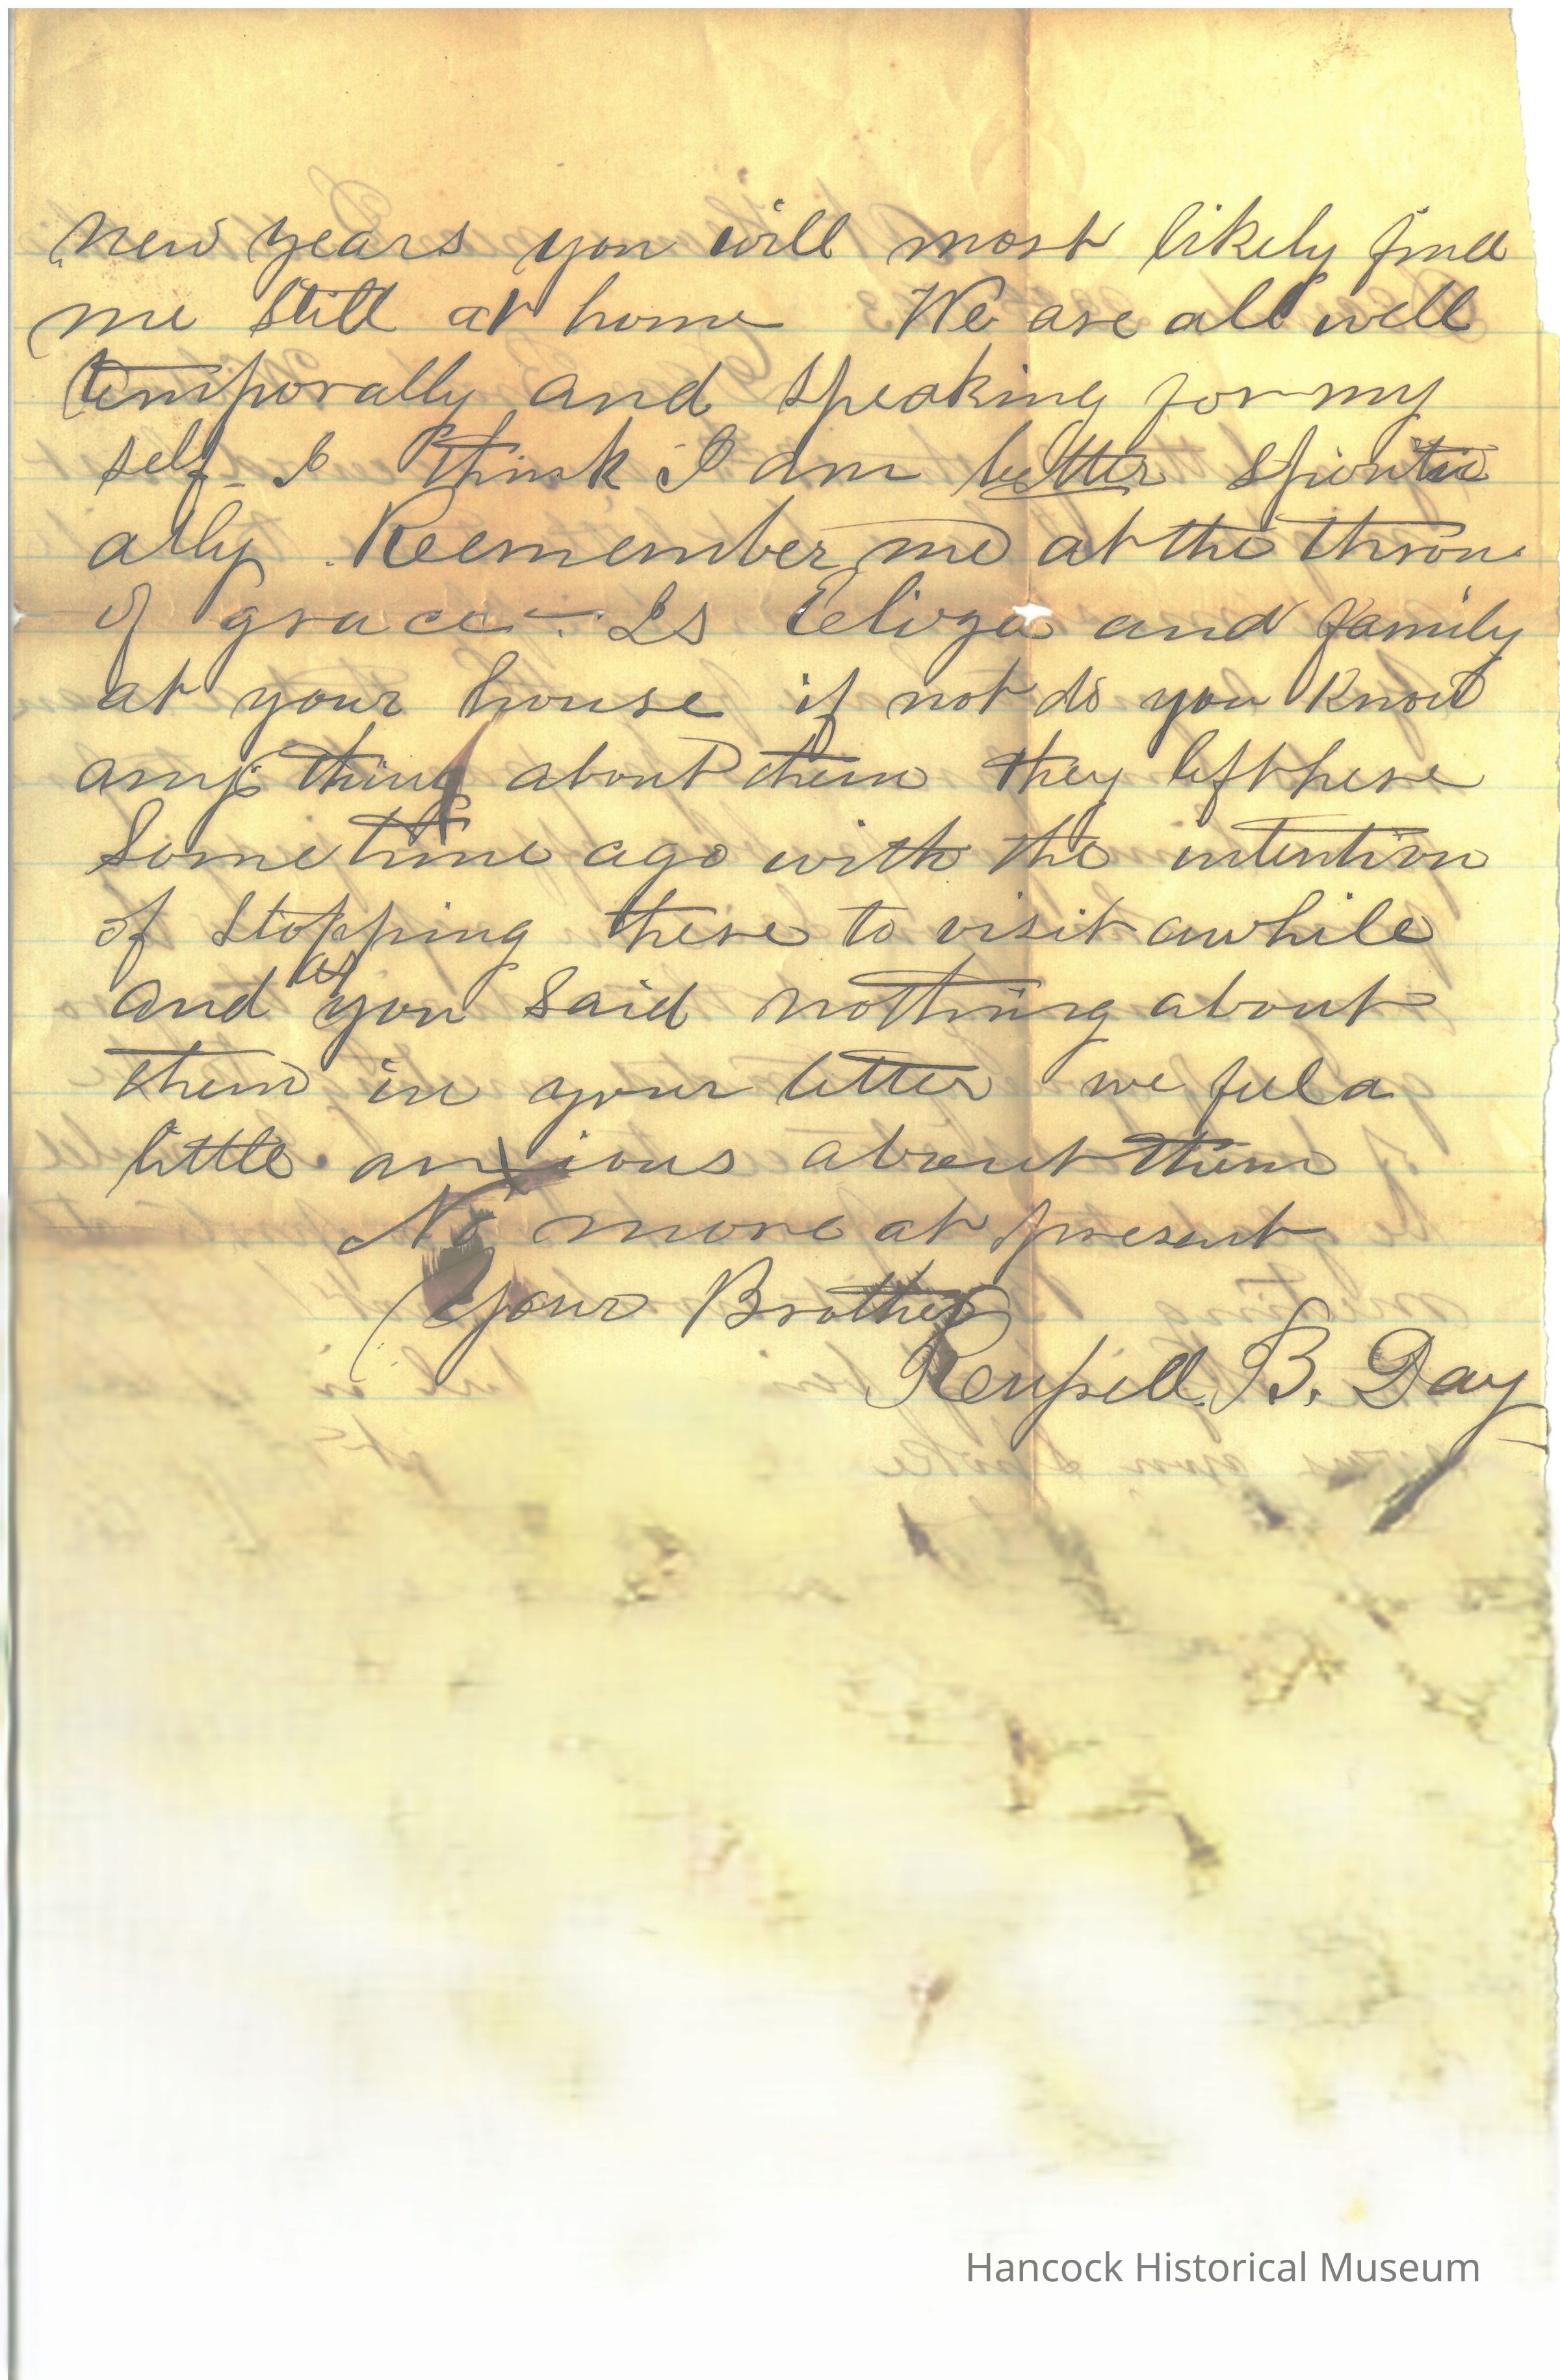 new years you will most likely find
me still at home We are all well
temporally and speaking for my
self - I think I am better spiritu
ally. Reemember me at the throne
of grace - Is Eeliza and family
at your house if not do you know
any thing about them they left here
Sometime ago with the intention
of stopping there to visit awhile
and as you said nothing about
them in your letter we feel a
little anxious about them
No more at present
Your Brother
Russell B. Day
Hancock Historical Museum